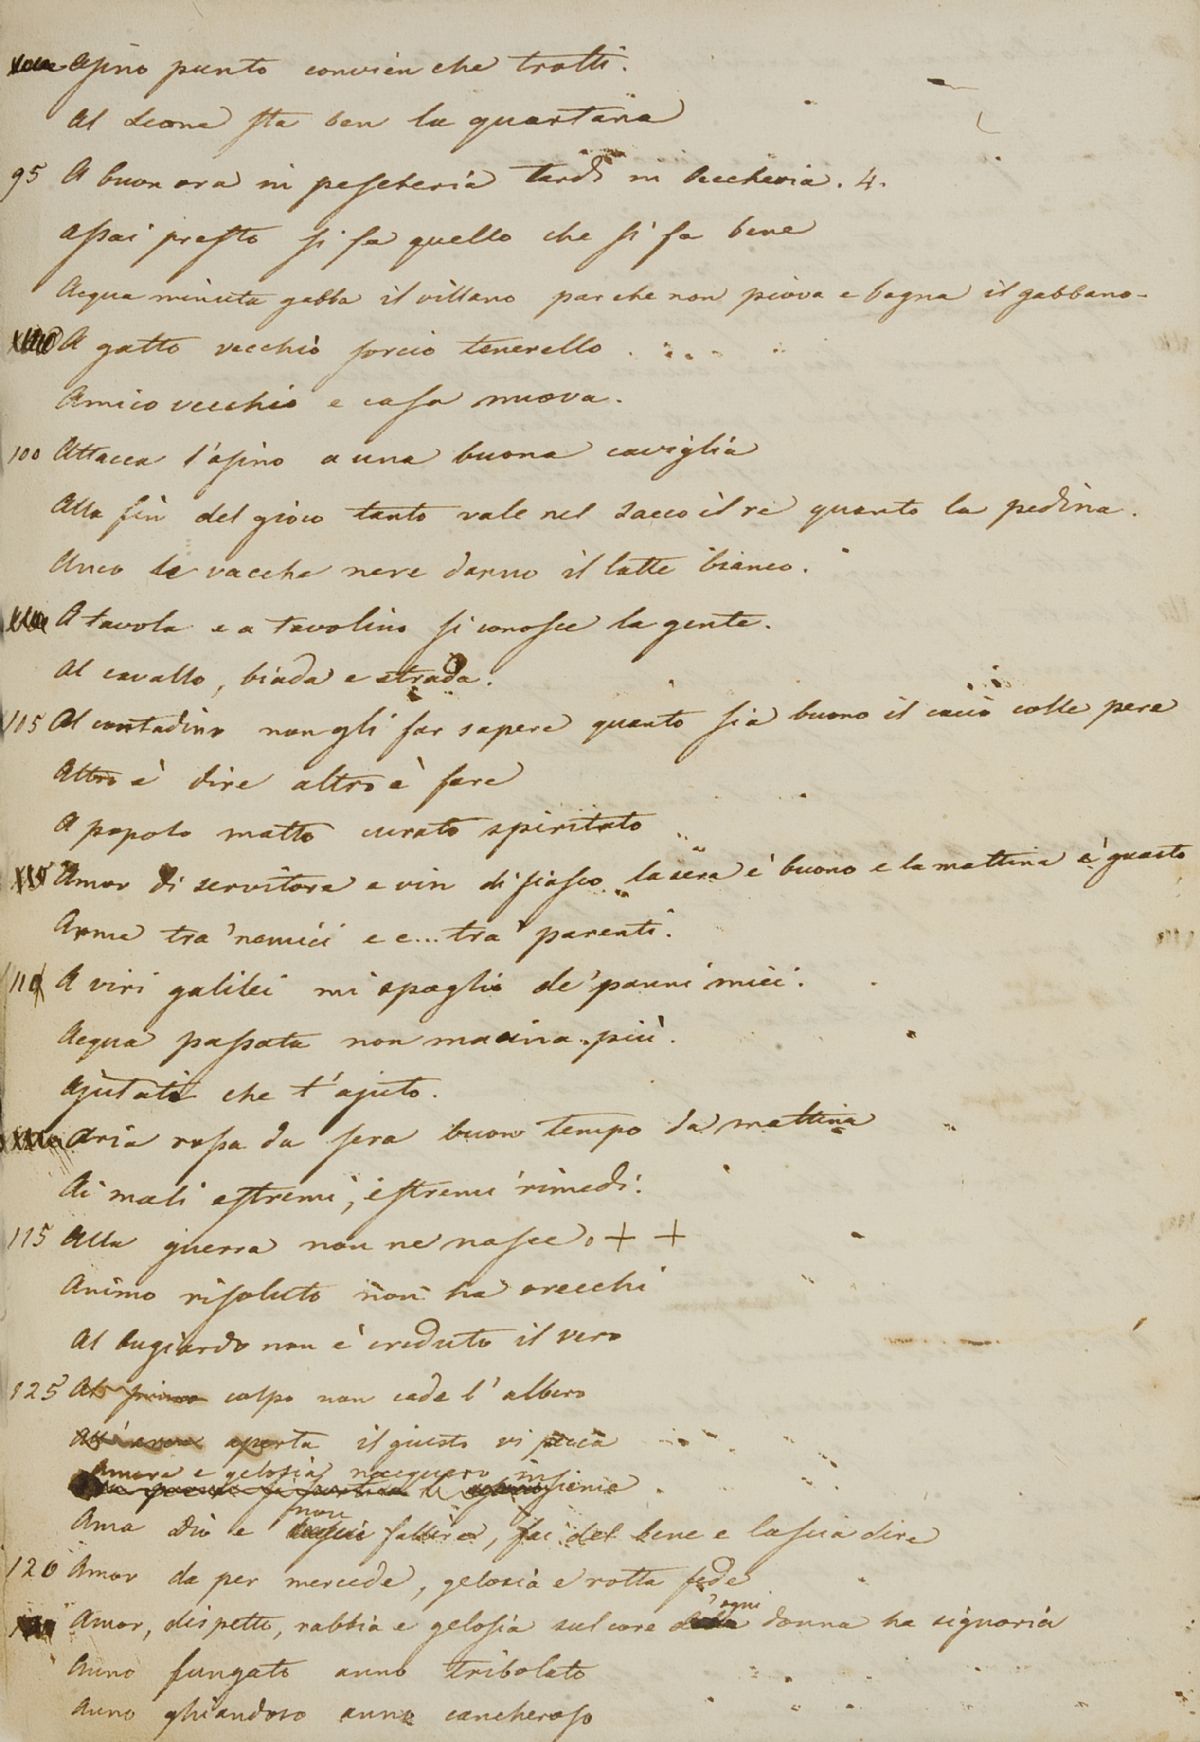 Asino punto convien che trotti.
Al Leone sta ben la quartana
95 A buon ora in pescheria tardi in beccheria. 4.
Assai presto si fa quello che si fa bene
Acqua minuta gabba il villano par che non piova e bagna il gabbano.
A gatto vecchio sorcio tenerello.
Amico vecchio e casa nuova.
100 Attacca l'asino a una buona caviglia
Alla fin del gioco tanto vale nel sacco il re quanto la pedina.
Anco le vacche nere danno il latte bianco.
A tavola e a tavolino si conosce la gente.
Al cavallo, biada e strada.
105 Al contadino non gli far sapere quanto sia buono il cacio colle pere
Altro è dire altro è fare
A popolo matto curato spiritato
Amor di servitore e vin di fiasco la sera è buono e la mattina è guasto
Arme tra' nemici e c... tra' parenti.
110 A viri galilei mi spoglio de' panni miei.
Acqua passata non macina più.
Ajutati che t'ajuto.
Aria rossa da sera buon tempo da mattina
Ai mali estremi, estremi rimedi.
115 Alla guerra non ne nasce. + +
Animo risoluto non ha orecchi
Al bugiardo non è creduto il vero
125 Al primo colpo non cade l'albero
All' arca aperta il giusto vi pecca
Amore e gelosia nacquero insieme.
Ama Dio e non fallire, fai del bene e lascia dire
120 Amor da per mercede, gelosia e rotta fede
Amor, dispetto, rabbia e gelosia sul core d'ogni donna ha signoria
Anno fungato anno tribolato
Anno ghiandoso anno cancheroso